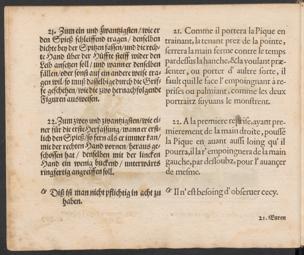 21. Zum ein und zwantzigsten / wie er
den Spieß schleiffend tragen / denselben
dicht bey der Spitzen fassen / und die rech-
te Hand über der Hüffte steiff wider den
Leib ansetzen soll / und wann er denselben
fällen / oder sonst auf ein andere weise tra-
gen wil / so muß dasselbig durch die Grif-
fe geschehen / wie die zwo hernachfolgende
Figuren ausweisen.
22. Zum zwey und zwantzigsten / wie ei-
ner für die erste Herfassung / wann er erst-
lich den Spieß / so fern als er immer kan /
mit der rechten Hand vornen heraus ge-
schossen hat / denselben mit der lincken
Hand ein wenig bückend / unterwärts
ringfertig angreiffen soll.
Diß ist man nicht pflichtig in acht zu
haben.
21. Comme il portera la Pique en
trainant, la tenant prez de la pointe,
serrera la main ferme contre le temps
par dessus la hanche, & la voulant præ-
senter, ou porter d'autre sorte, il
fault qu'il le face l'empoignant à re-
prises ou palmiant, comme les deux
portraitz suyuans le monstrent.
22. A la premiere restrise, ayant pre-
mierement de la main droite, poussé
la Pique en auant aussi loing qu'il
pourra, il la r'empoignera de la main
gauche, par dessoubz, pour l'auançer
de mesme.
Il n'est besoing d'obseruer cecy.
21. Euren